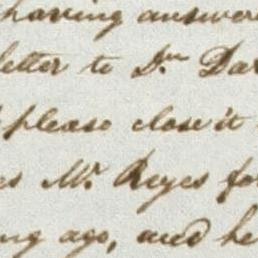 having answere
letter to Dr. Dar
please close it
es Mr. Reyes fo
ng ago, and he